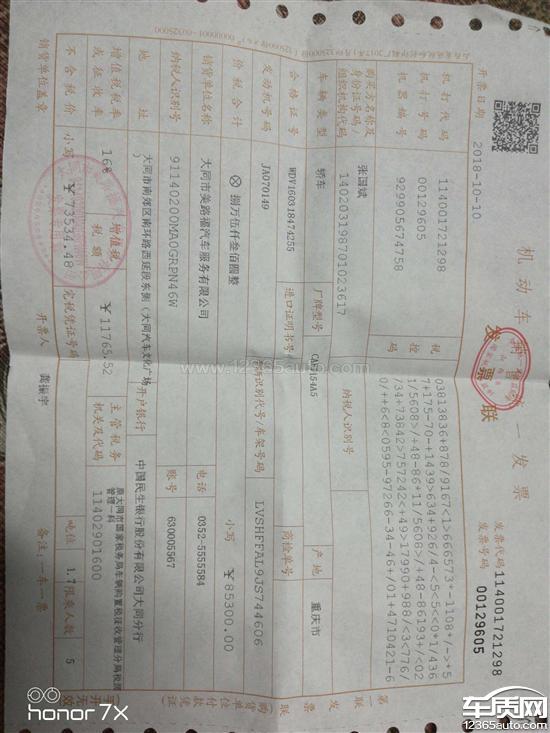 机动车销售统一发票
发票联
发票代码 114001721298
发票号码 00129605
开票日期 2018-10-10
机打代码 114001721298
机打号码 00129605
机器编号 929905674758
税控码
03813836+878/9167<1>666573+-1108*/->+5
购买方名称及身份证号码/组织机构代码
张国斌
140203198701023617
纳税人识别号
车辆类型 轿车
厂牌型号
产地 重庆市
合格证号 WDV160318474255
进口证明书号
商检单号
发动机号码 JA070149
车辆识别代号/车架号码 LVSHFFAL9JS744606
价税合计 ⊗捌万伍仟叁佰圆整
小写 ￥85300.00
销货单位名称 大同市美路福汽车服务有限公司
电话 0352-5555584
纳税人识别号 91140200MA0GRPN46W
账号 630005567
地址 大同市南郊区南环路西延段东侧(大同汽车文化广场
开户银行 中国民生银行股份有限公司大同分行
增值税税率或征收率 16%
增值税税额 ￥11765.52
主管税务机关及代码
11402901600
不含税价 小写 ￥73534.48
完税凭证号码
吨位 1.7
限乘人数 5
销货单位盖章
开票人 龚振宇
备注：一车一票
第一联 发票联
(购货单位付款凭证)
手开无效
www.12365auto.com
honor 7X
车质网
12365auto.com